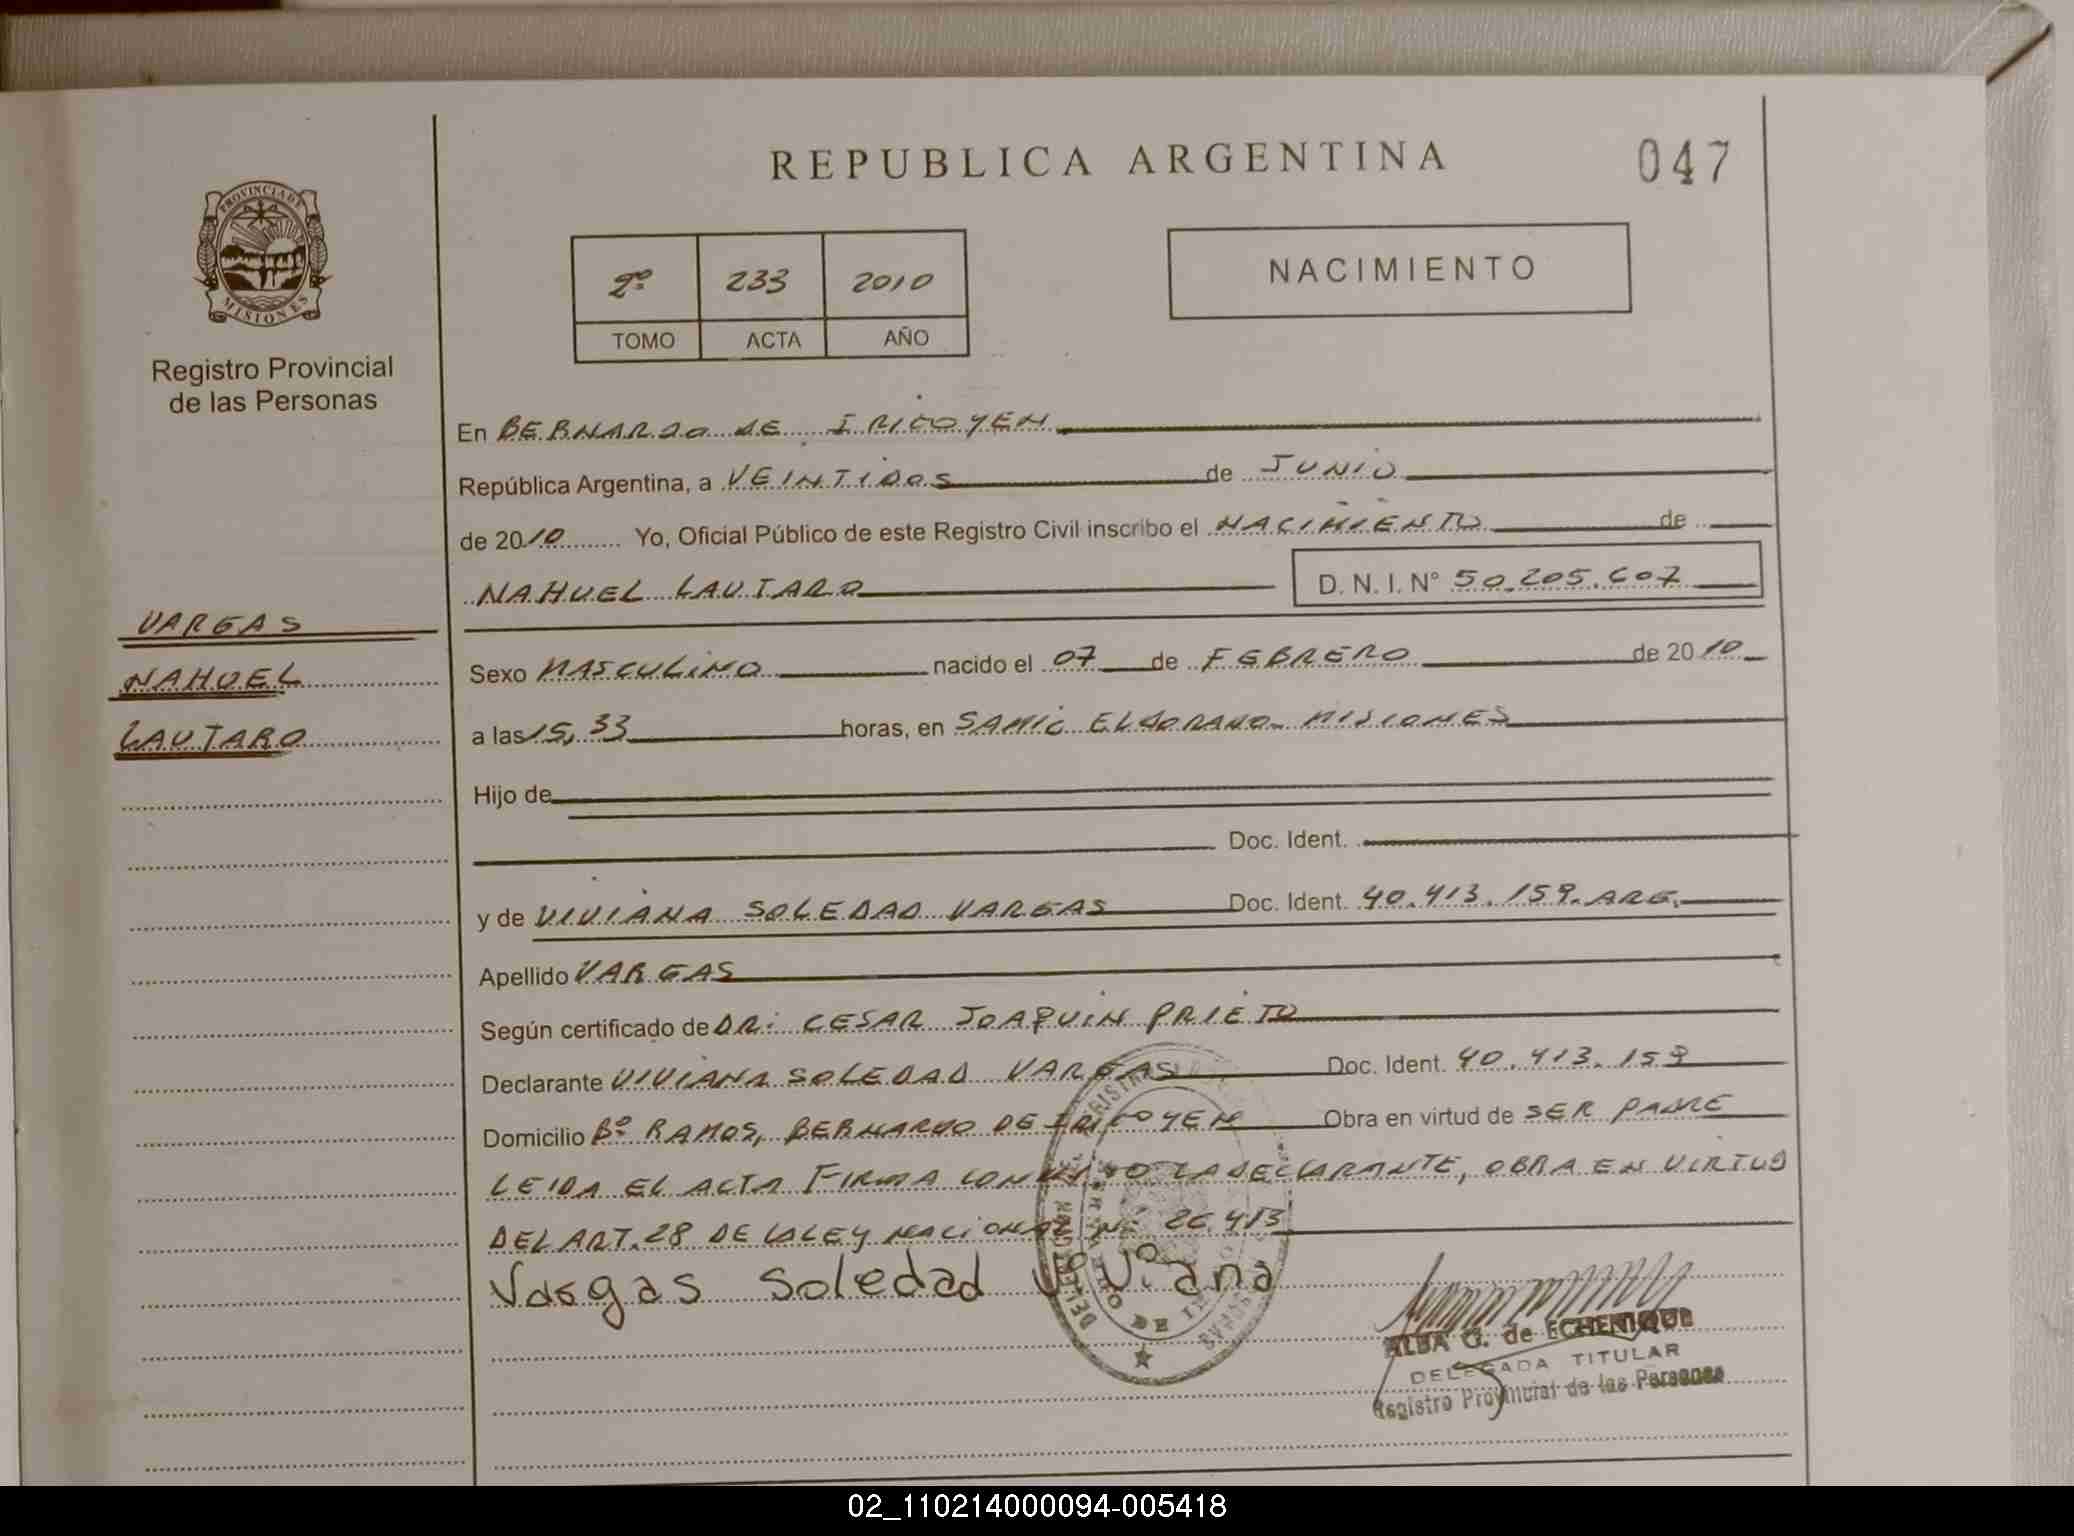 REPUBLICA ARGENTINA
047
PROVINCIA DE
MISIONES
Registro Provincial
de las Personas
2º 233 2010
TOMO ACTA AÑO
NACIMIENTO
En BERNARDO DE IRIGOYEN
República Argentina, a VEINTIDOS de JUNIO
de 2010 Yo, Oficial Público de este Registro Civil inscribo el NACIMIENTO de
NAHUEL LAUTARO D. N. I. Nº 50.205.607
VARGAS
NAHUEL
LAUTARO
Sexo MASCULINO nacido el 07 de FEBRERO de 2010
a las 15,33 horas, en SAMIC ELDORADO - MISIONES
Hijo de
Doc. Ident.
y de VIVIANA SOLEDAD VARGAS Doc. Ident. 40.413.159. ARG.
Apellido VARGAS
Según certificado de DR: CESAR JOAQUIN PRIETO
Declarante VIVIANA SOLEDAD VARGAS Doc. Ident. 40.413.159
Domicilio Bº RAMOS, BERNARDO DE IRIGOYEN Obra en virtud de SER PADRE
LEIDA EL ACTA FIRMA CONMIGO LA DECLARANTE, OBRA EN VIRTUD
DEL ART. 28 DE LA LEY NACIONAL Nº 26.413
Vargas Soledad Viviana
ALBA G. de ECHENIQUE
DELEGADA TITULAR
Registro Provincial de las Personas
02_110214000094-005418